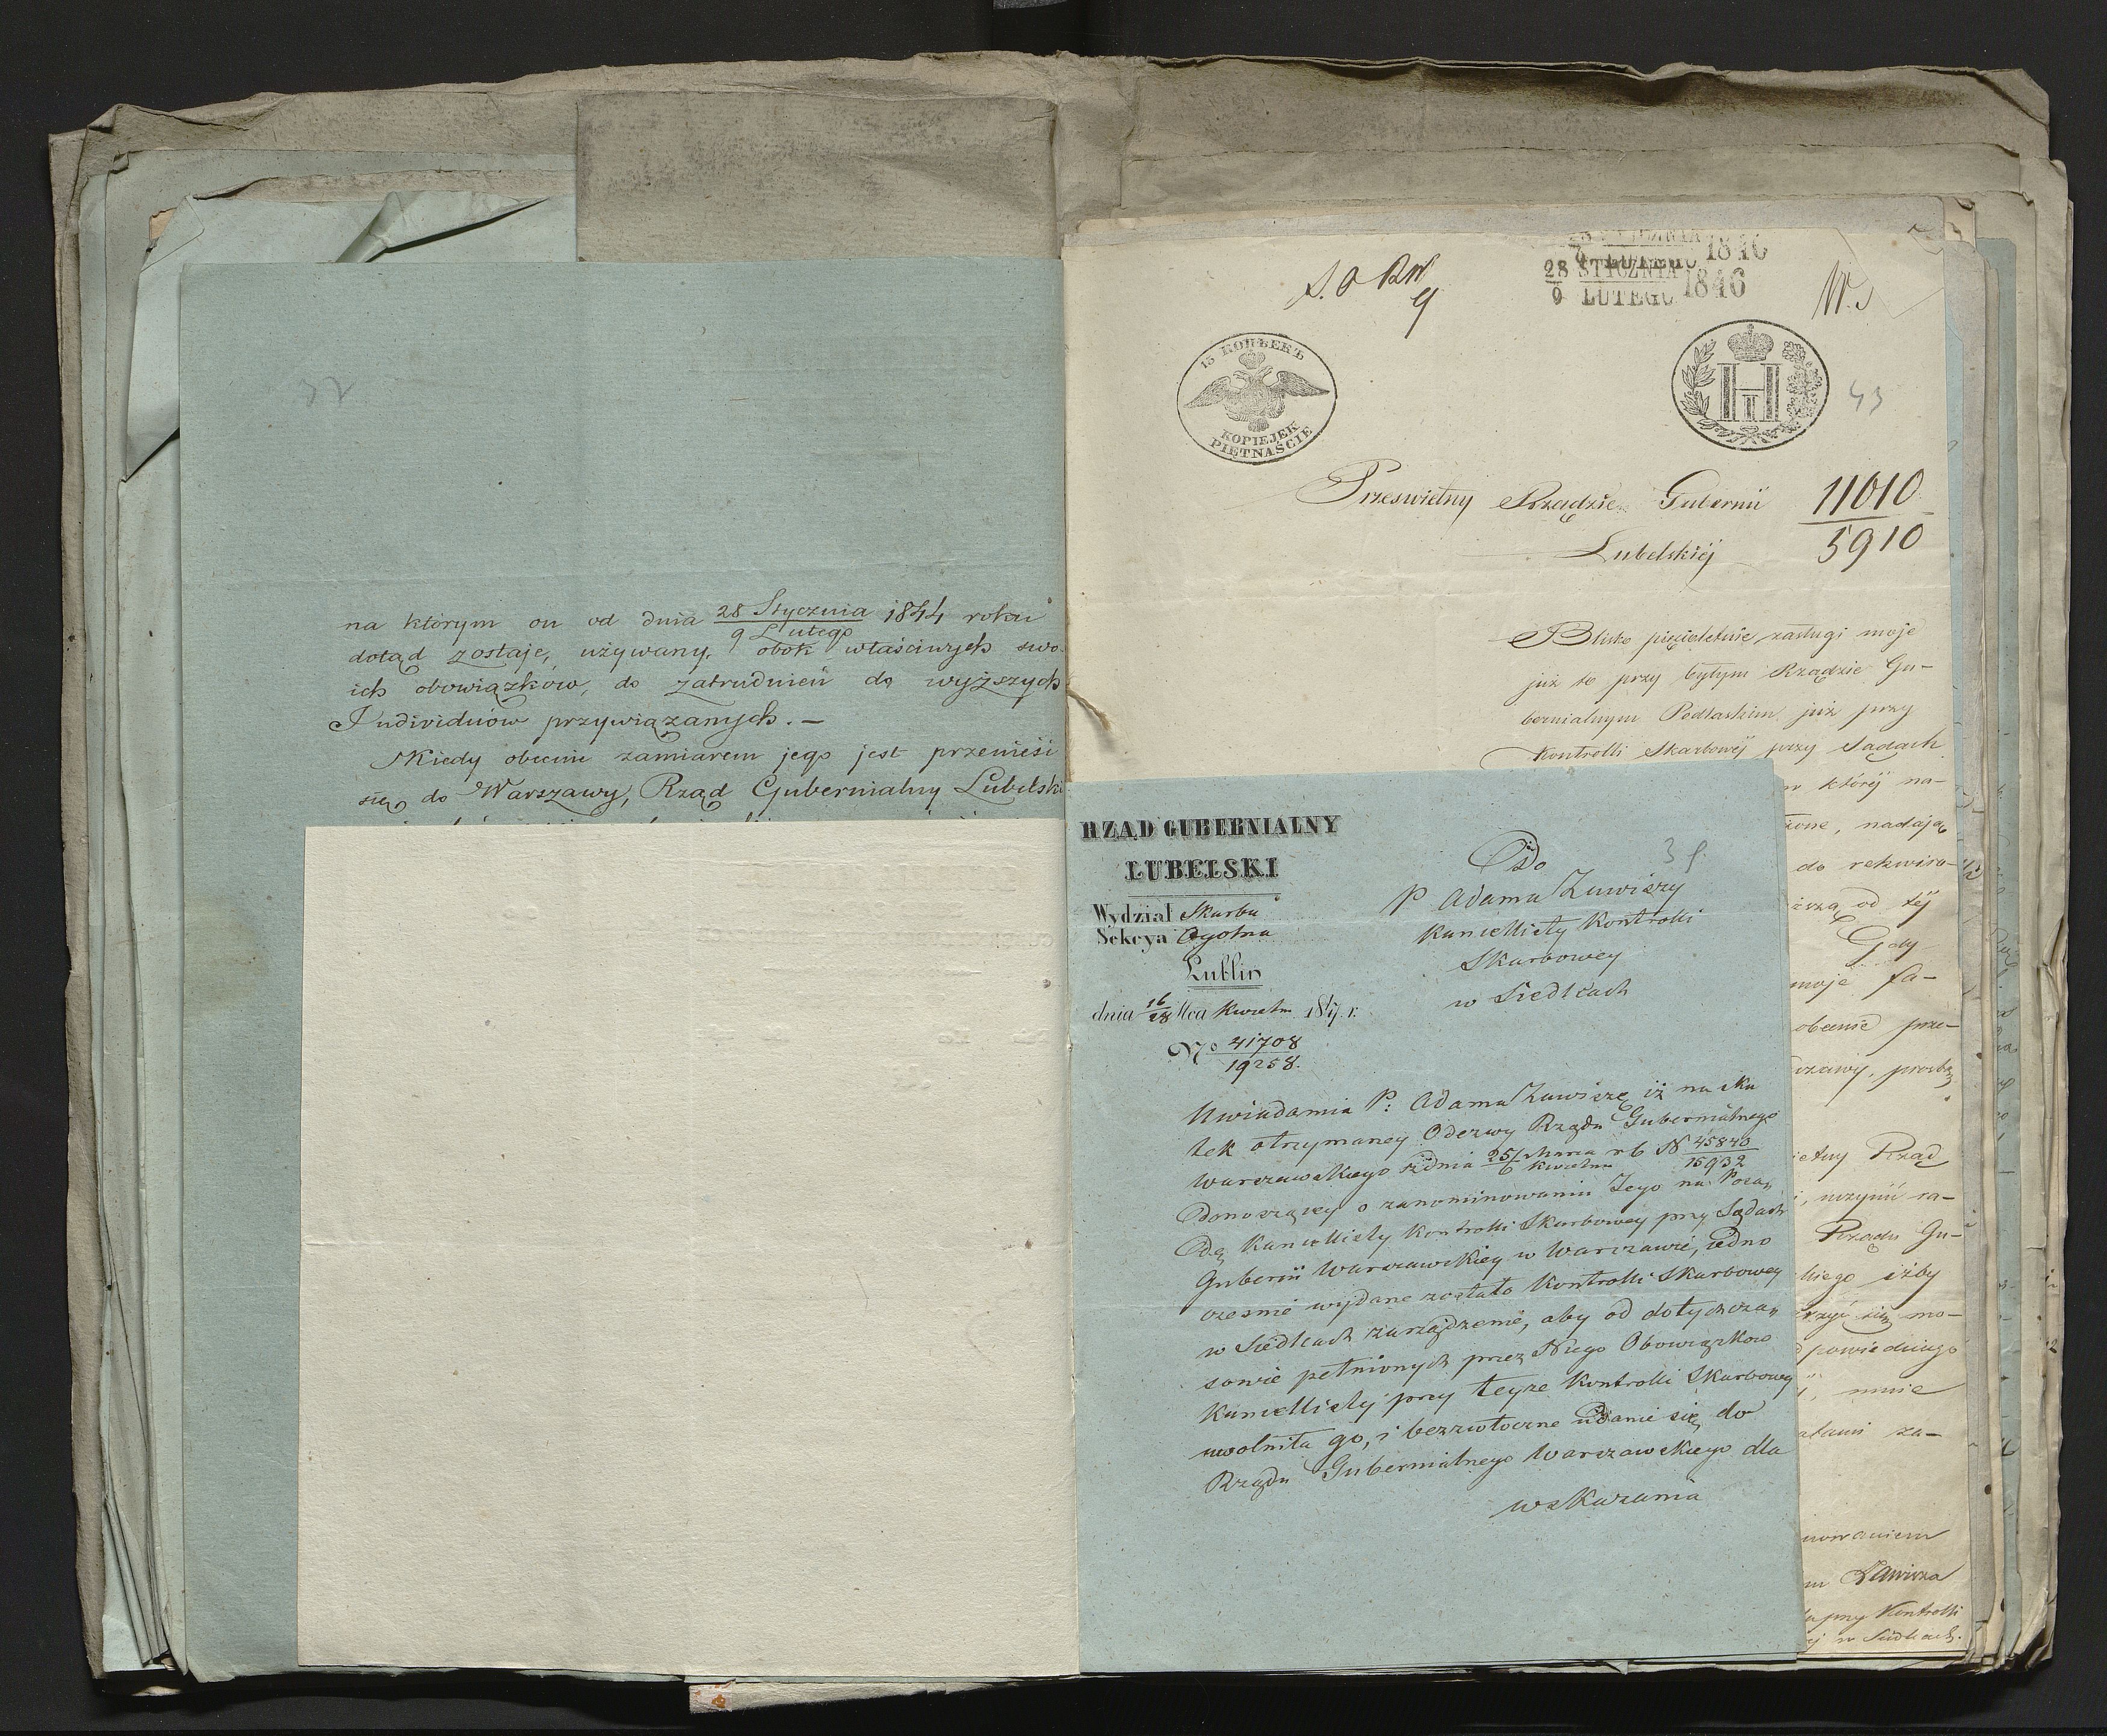 32
na którym on od dnia 28 Stycznia / 9 Lutego 1844 roku
dotąd zostaje, używany, obok właściwych swo-
ich obowiązków, do zatrudnień do wyższych
Individuów przywiązanych. —
Kiedy obecnie zamiarem jego jest przenieść
się do Warszawy, Rząd Gubernialny Lubelski
28 STYCZNIA 1846
9 LUTEGO
43
15 КОПѢЕКЪ
KOPIEJEK
PIĘTNAŚCIE
Prześwietny Rządzie Gubernii
Lubelskiéj
11010
5910
Blisko pięcioletnie zasługi moje
już to przy byłym Rządzie Gu-
bernialnym Podlaskim, już przy
Kontrolli Skarbowéj przy Sądach
któréj na-
nadają
do rekwiro-
od téj
Gdy
moje fa-
obecnie prze-
prosbą
Rząd
uczynić ra-
Rządu Gu-
iżby
się mo-
mnie
za-
Zawisza
przy Kontrolli
w Siedlcach.
RZĄD GUBERNIALNY
LUBELSKI
Wydział Skarbu
Sekcya Ogolna
Lublin
dnia 16/28 Mca Kwietn 184 r.
No 41708
19258.
Do
P Adama Zawiszy
Kancellisty Kontrolli
Skarbowey
w Siedlcach
Uwiadamia P: Adama Zawiszę iż na sku
tek otrzymaney Odezwy Rządu Gubernialnego
Warszawskiego z dnia 25 Marca / 6 Kwietnia r b N 45840 / 15932
Donoszącey o zanominowaniu Jego na Posa„
dę Kancellisty Kontrolli Skarbowey przy Sądach
Gubernii Warszawskiey w Warszawie, jedno
czesnie wydane zostało Kontrolli Skarbowey
w Siedlcach zarządzenie, aby od dotychcza„
sowie pełnionych przez Niego Obowiązkow
Kancellisty przy teyze Kontrolli Skarbowey
uwolniła go, i bezzwłoczne udanie się do
Rządu Gubernialnego Warszawskiego dla
wskazania